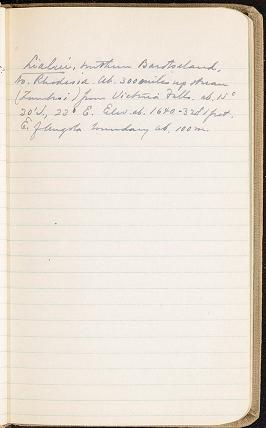 Lialui, northern Barotseland,
No. Rhodesia. Ab. 300 miles up stream
(Zambesi) from Victoria Falls. ab. 15°
20' S, 22° E. Elev. ab. 1640- feet.
E. of Angola boundary ab. 100 m.